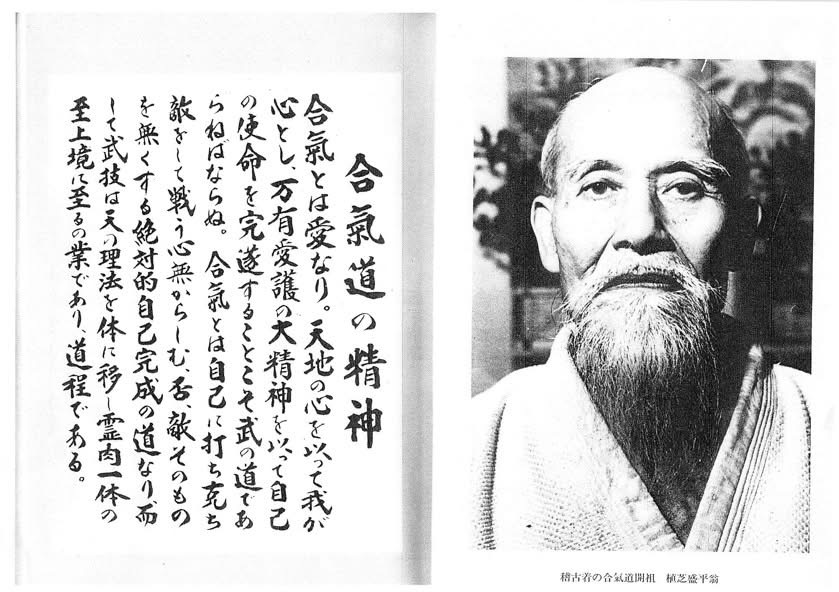 合氣道の精神
合氣とは愛なり。天地の心を以って我が
心とし、万有愛護の大精神を以って自己
の使命を完遂することこそ武の道であ
らねばならぬ。合氣とは自己に打ち克ち
敵をして戦う心無からしむ、否、敵そのもの
を無くする絶対的自己完成の道なり、而
して武技は天の理法を体に移し霊肉一体の
至上境に至るの業であり、道程である。
稽古着の合氣道開祖　植芝盛平翁